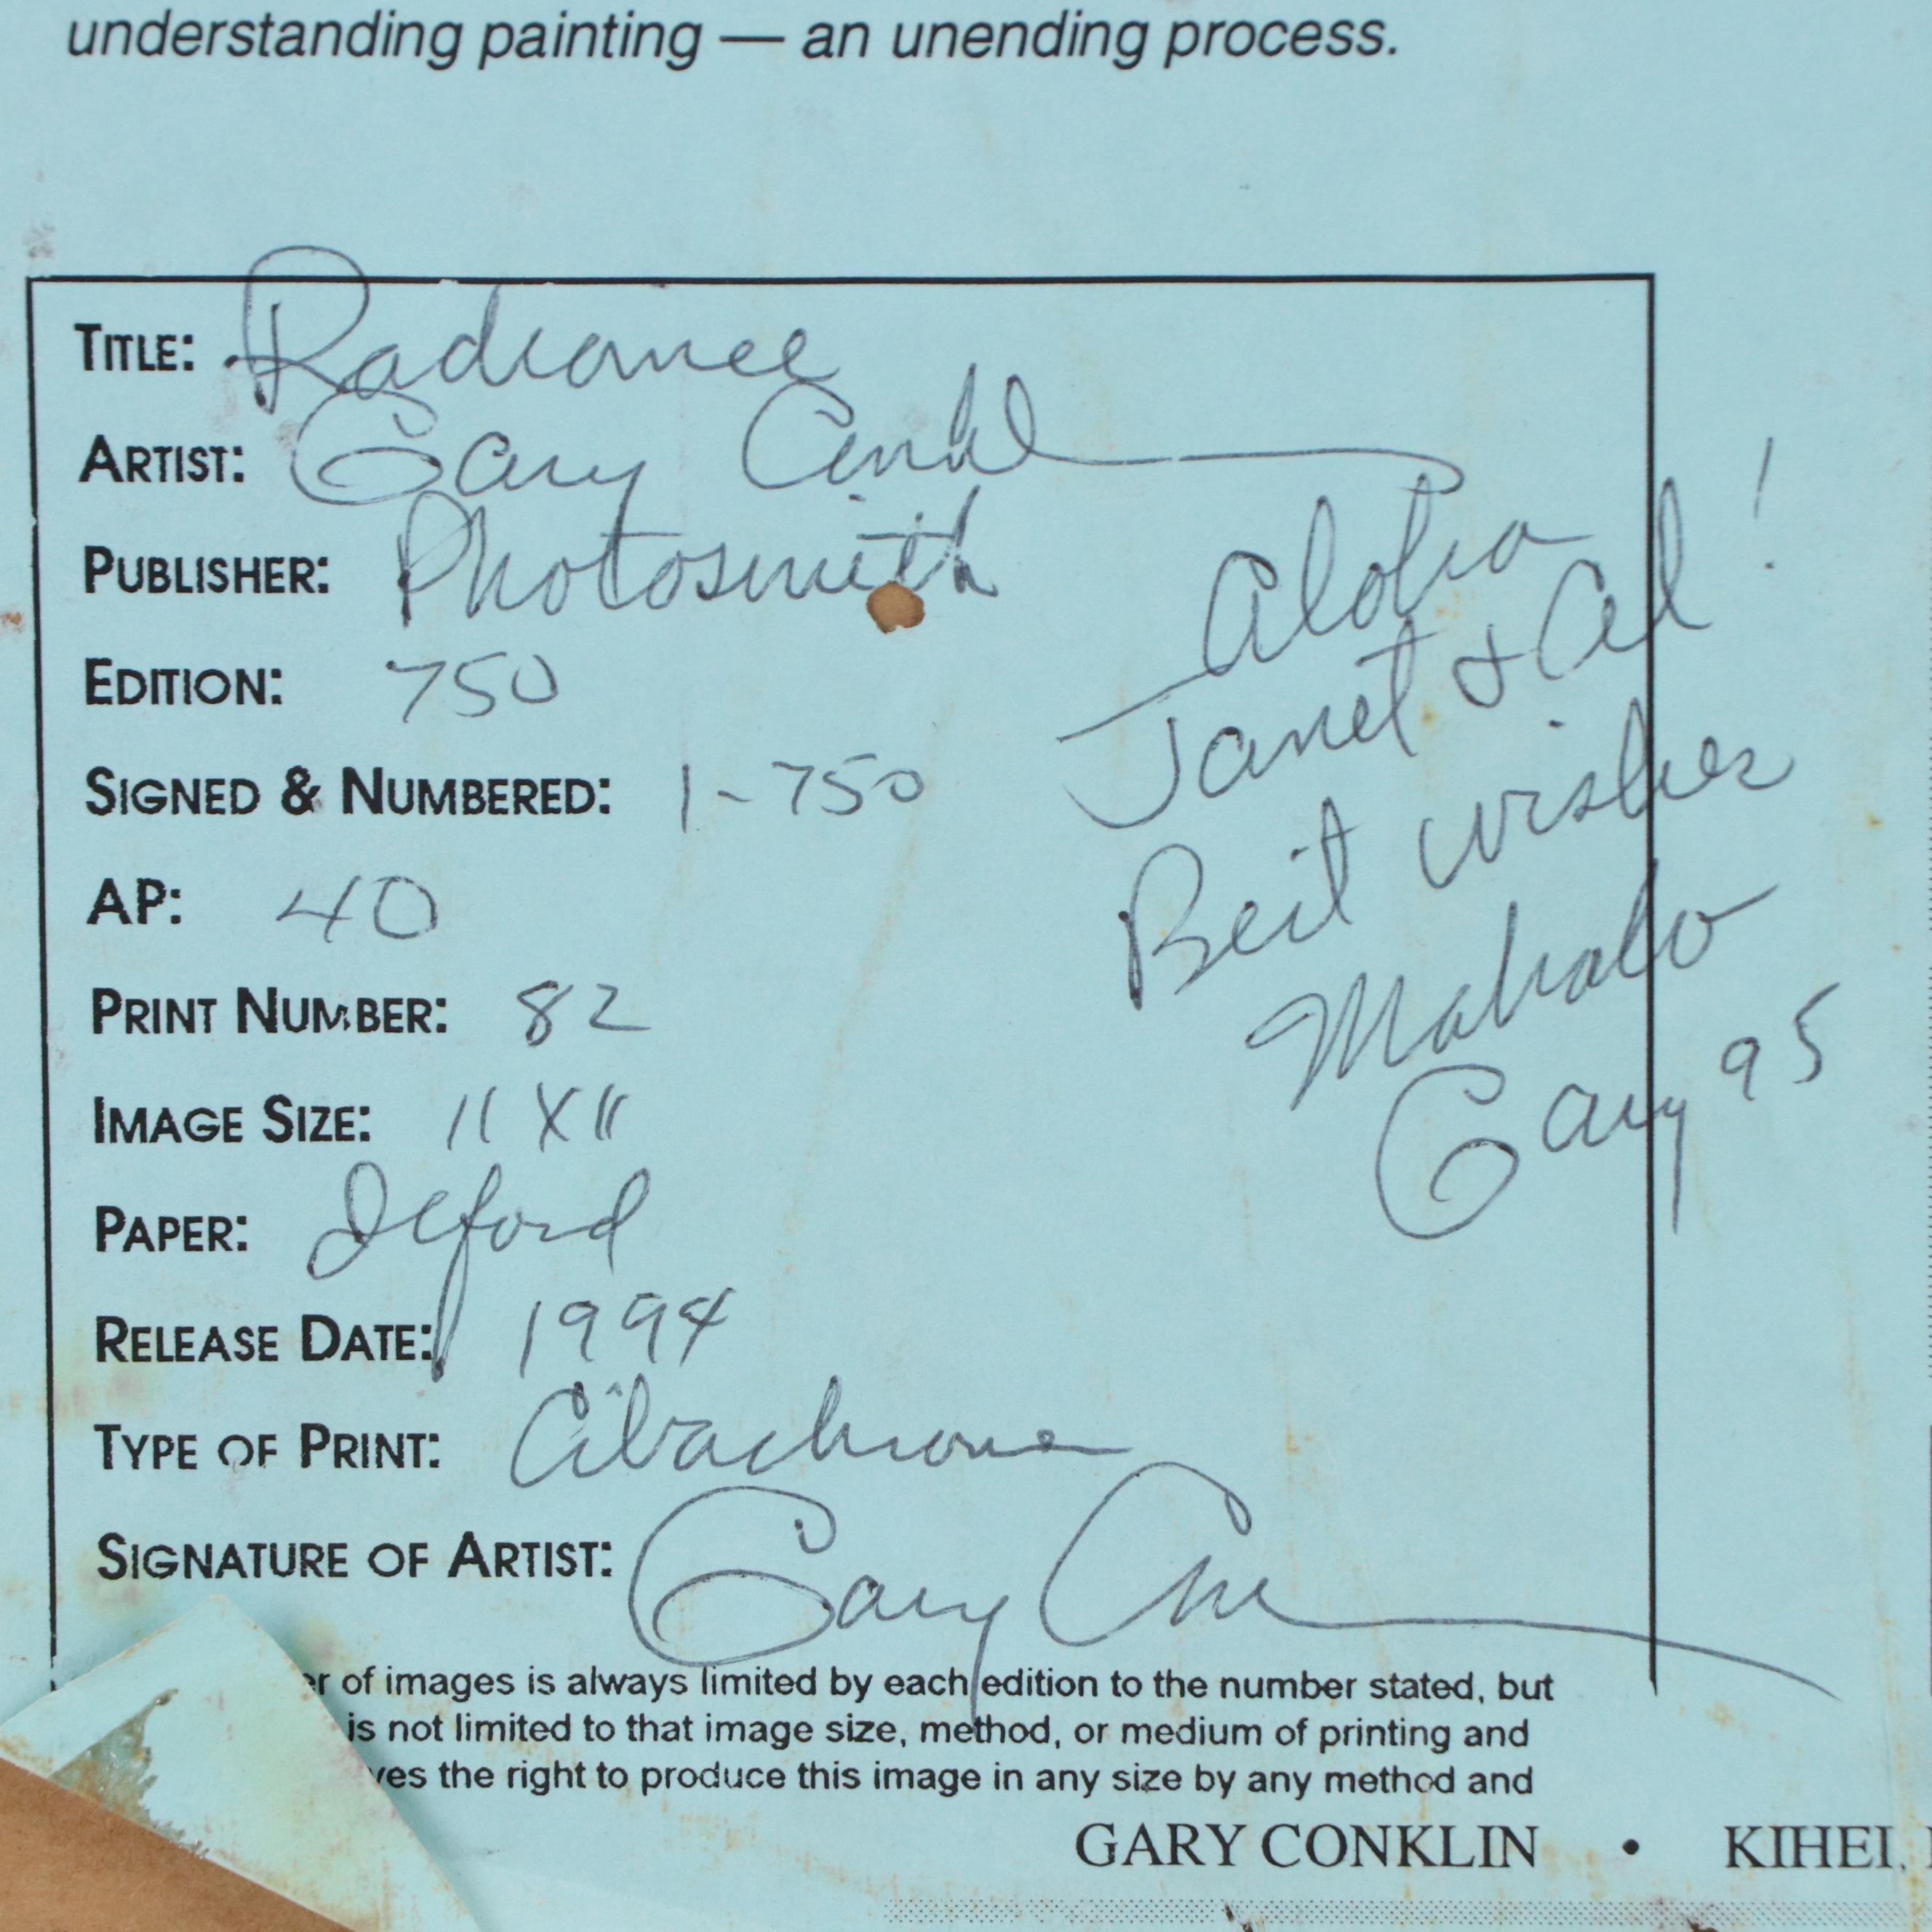 understanding painting — an unending process.
TITLE: Radiance
ARTIST: Gary Conkl
PUBLISHER: Photosmith
EDITION: 750
SIGNED & NUMBERED: 1-750
AP: 40
PRINT NUMBER: 82
IMAGE SIZE: 11 X 11
PAPER: Ilford
RELEASE DATE: 1994
TYPE OF PRINT: Cibachrome
SIGNATURE OF ARTIST: Gary
Aloha
Janet & Al!
Best wishes
Mahalo
Gary 95
of images is always limited by each edition to the number stated, but
is not limited to that image size, method, or medium of printing and
the right to produce this image in any size by any method and
GARY CONKLIN • KIHEI,